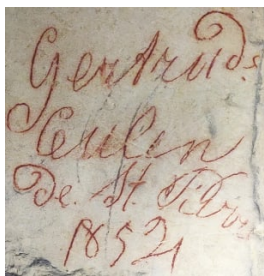 Gertruds
Ceulen
De. St. Tron
1852